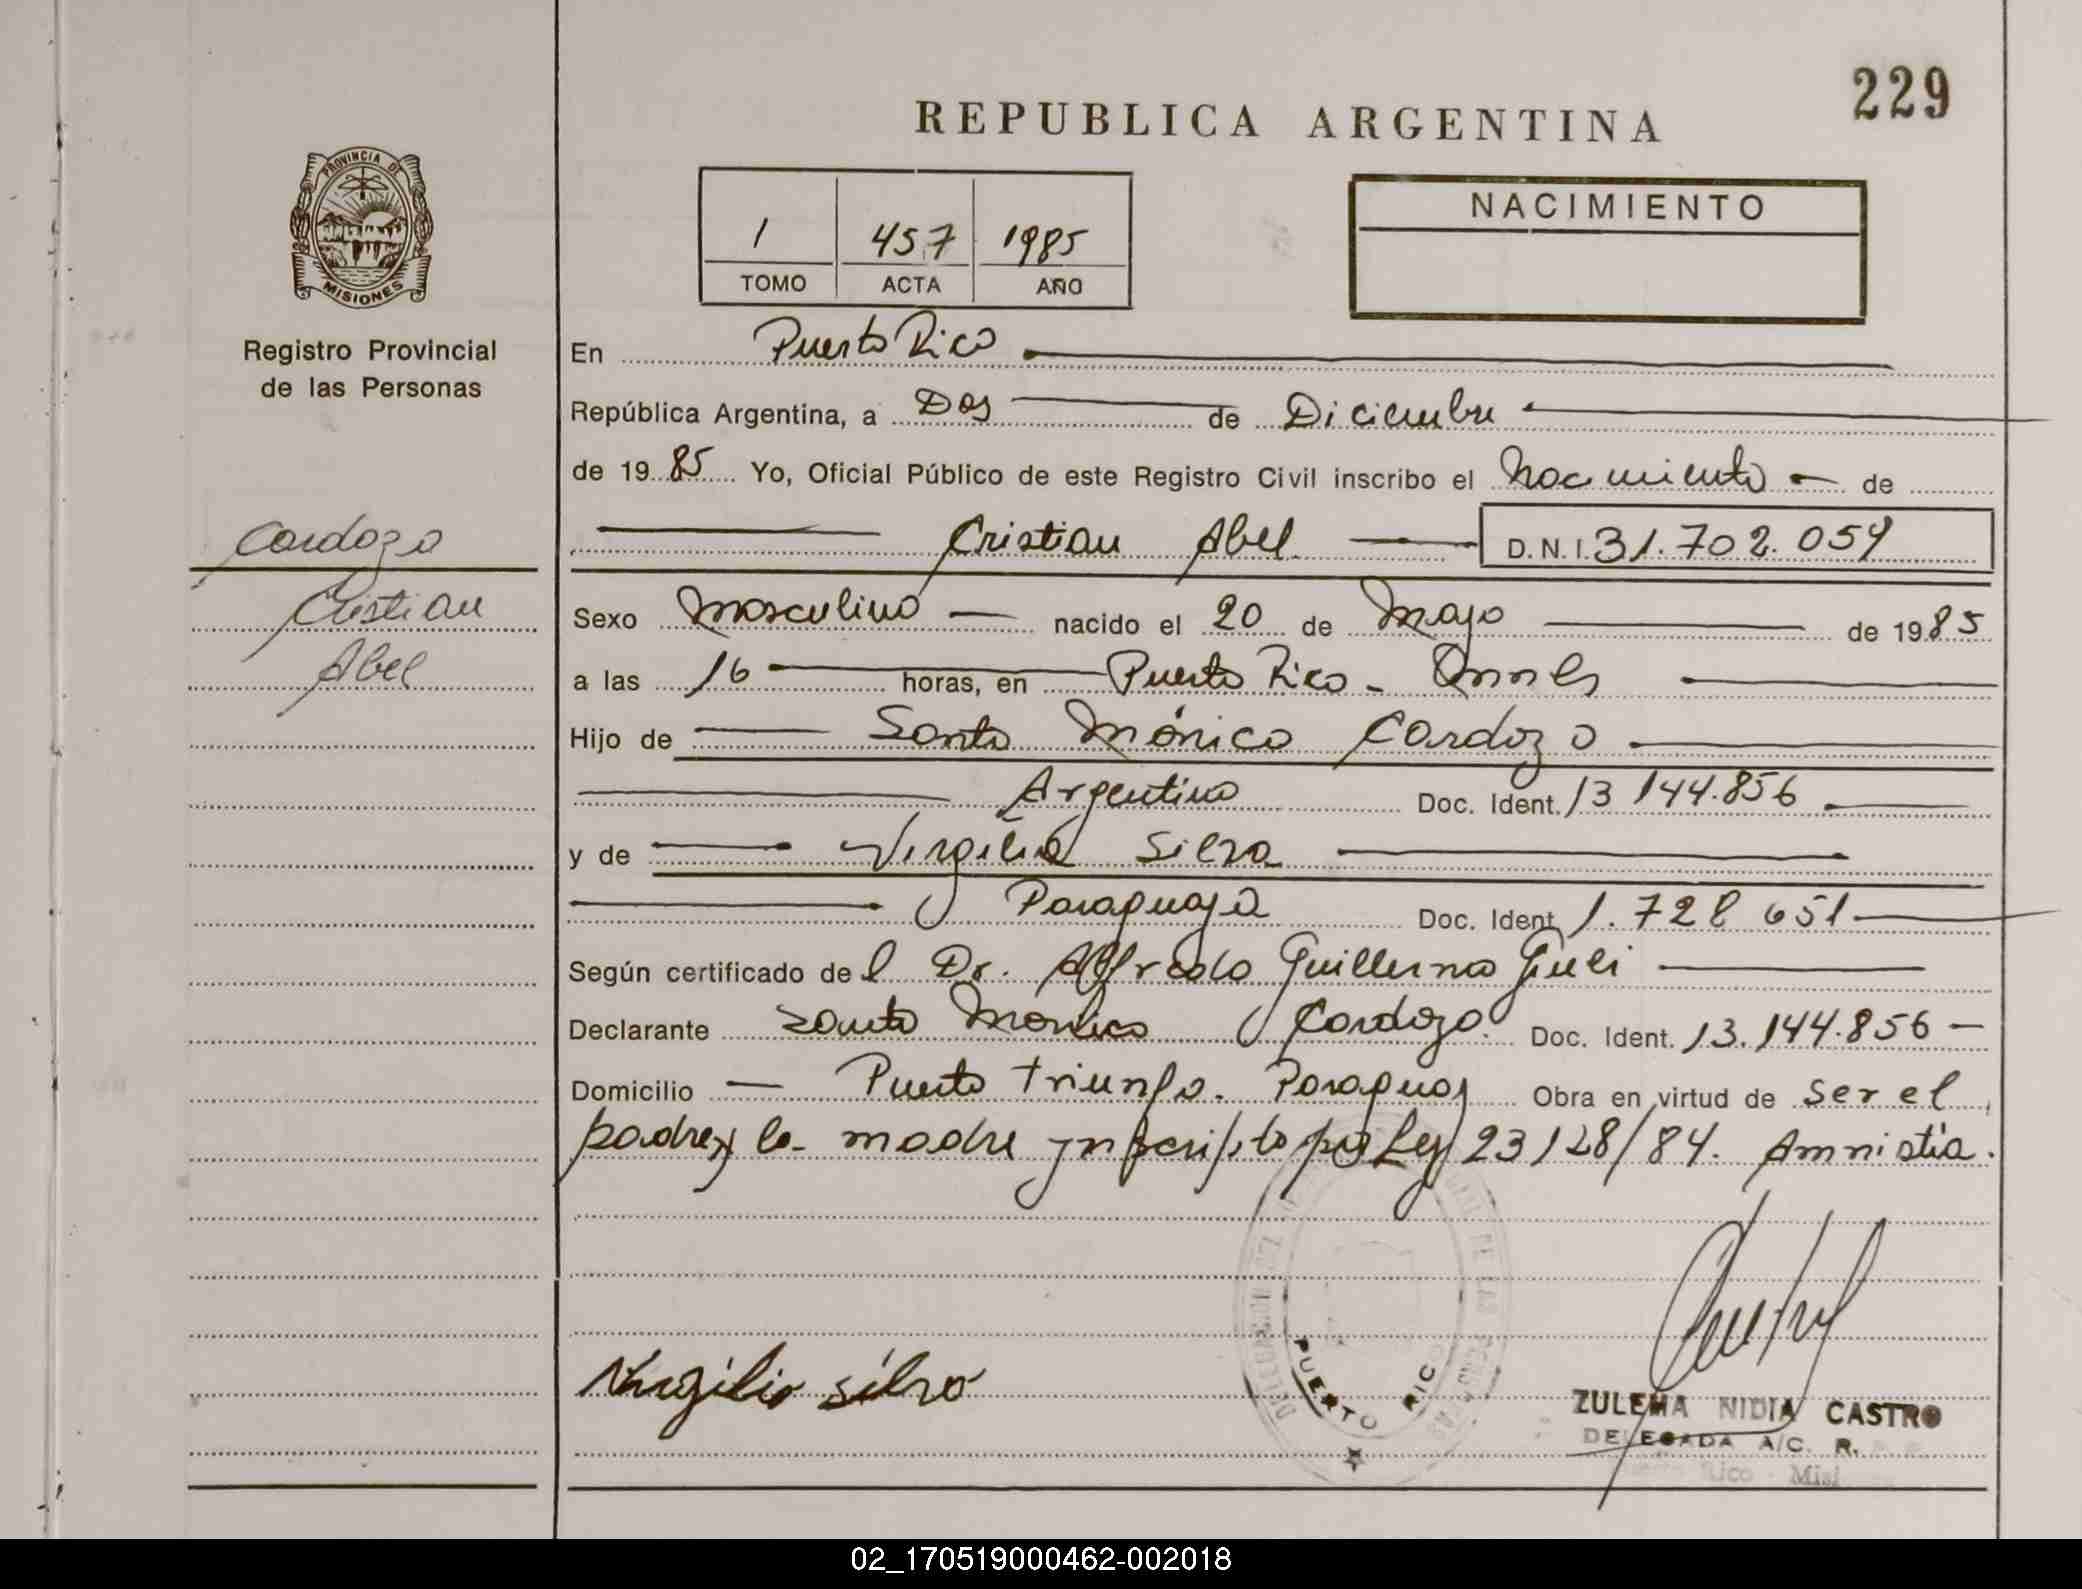 229
REPUBLICA ARGENTINA
PROVINCIA DE
MISIONES
Registro Provincial
de las Personas
Cardozo
Cristian
Abel
1 457 1985
TOMO ACTA AÑO
NACIMIENTO
En Puerto Rico
República Argentina, a Dos de Diciembre
de 1985 Yo, Oficial Público de este Registro Civil inscribo el Nacimiento de
Cristian Abel D.N.I. 31.702.059
Sexo Masculino nacido el 20 de Mayo de 1985
a las 16 horas, en Puerto Rico -
Hijo de Santo Mónico Cardozo
Argentino Doc. Ident. 13 144.856
y de Virgilia Silva
Paraguaya Doc. Ident. 1.728 651
Según certificado del Dr. Alfredo Guillermo
Declarante Santo Monico Cardozo. Doc. Ident. 13.144.856
Domicilio Puerto Triunfo. Paraguay Obra en virtud de ser el
padre y la madre ynscripto por Ley 23128/84. Amnistia.
Virgilia Silva
PUERTO RICO
ZULEMA NIDIA CASTRO
DELEGADA A/C. R.
Rico - Misi
02_170519000462-002018